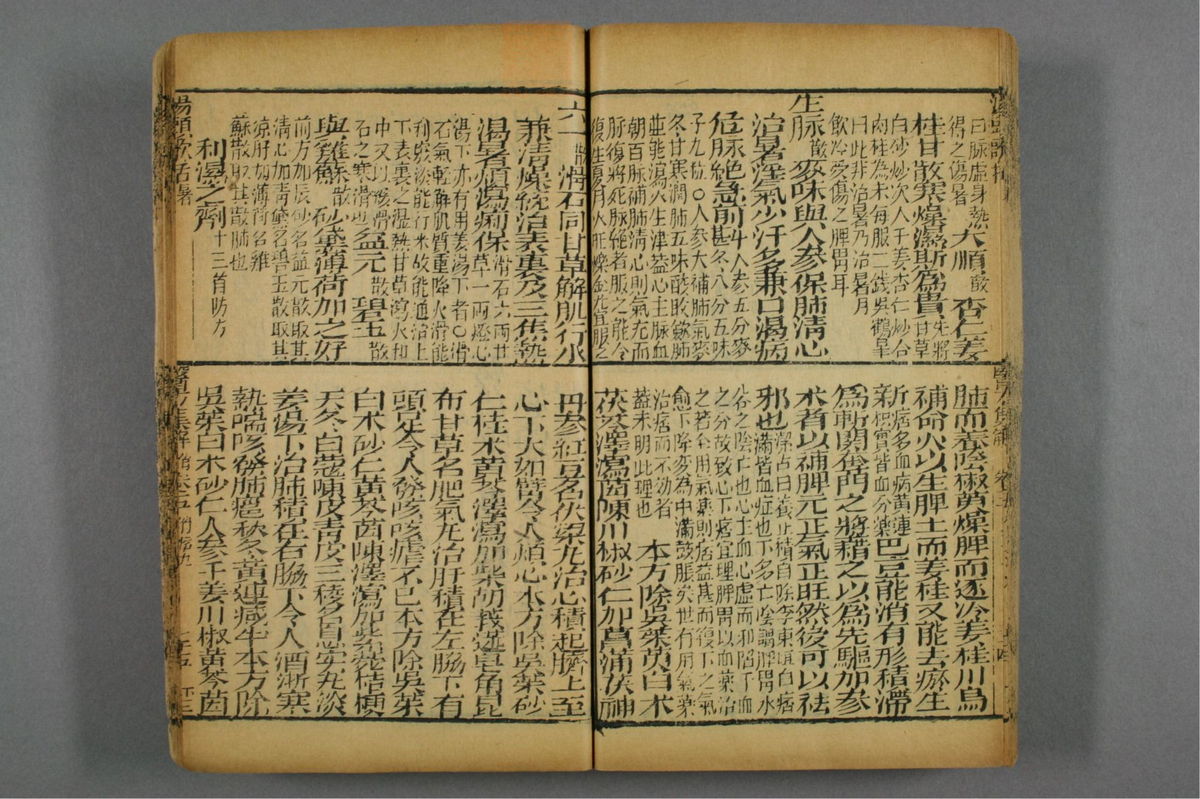 曰脉虛身熱
得之傷暑 大順散 杏仁姜
桂甘散寒燥濕斯爲貴 先將甘草
白砂炒次入干姜杏仁炒合
肉桂為末每服二錢吳鶴臯
曰此非治暑乃治暑月
飲冷受傷之脾胃耳
生脉散 麥味與人參保肺淸心
治暑淫氣少汗多兼口渴病
危脉絕急前斟 人參五分麥
冬八分五味
子九粒○人參大補肺氣麥
冬甘寒潤肺五味酸收斂肺
並能瀉火生津益心主脉血
朝百脉補肺清心則氣充而
脉復將死脉絕者服之能令
復生夏月火旺爍金宜服之
椒萸燥脾而逐冷姜桂川烏
補命火以生脾土而姜桂又能去瘀生
新 痞多血病黃連
枳實皆血分藥 巴豆能消有形積滯
爲斬關奪門之將藉之以爲先驅加參
朮者以補脾元正氣正旺然後可以祛
邪也 潔古曰養正積自除李東垣曰痞
滿皆血症也下多亡陰謂脾胃水
谷之陰亡也心主血心虛而邪陷于血
之分故致心下痞宜理脾胃以血藥治
之若全用氣藥則痞益甚而復下之氣
愈下降變為中滿鼓脹矣世有用氣藥
治痞而不効者
蓋未明此理也 本方除吳茱萸白朮
茯苓澤瀉茵陳川椒砂仁加菖蒲茯神
六一散 滑石同甘草解肌行水
兼清燥統治表裏及三焦熱
渴暑煩瀉痢保 滑石六兩甘
草一兩燈心
湯下亦有用姜湯下者○滑
石氣輕解肌質重降火滑能
利竅淡能行水故能通治上
下表裏之濕熱甘草瀉火和
中又以緩滑
石之寒滑也 益元散 碧玉散
與雞蘇散 砂黛薄荷加之好
前方加辰砂名益元散取其
淸心加青黛名碧玉散取其
凉肝加薄荷名雞
蘇散取其散肺也
利濕之劑 十三首附方
丹參紅豆名伏梁丸治心積起臍上至
心下大如臂令人煩心本方除吳茱砂
仁桂朮黃芩澤瀉加柴胡莪蓬皂角昆
布甘草名肥氣丸治肝積在左脇下有
頭足令人發咳痎瘧不已本方除吳茱
白朮砂仁黃芩茵陳澤瀉加紫菀桔梗
天冬白蔻陳皮青皮三稜名息賁丸淡
姜湯下治肺積在右脇下令人洒淅寒
熱喘咳發肺癰秋冬黃連減半本方除
吳茱白朮砂仁人參干姜川椒黃芩茵